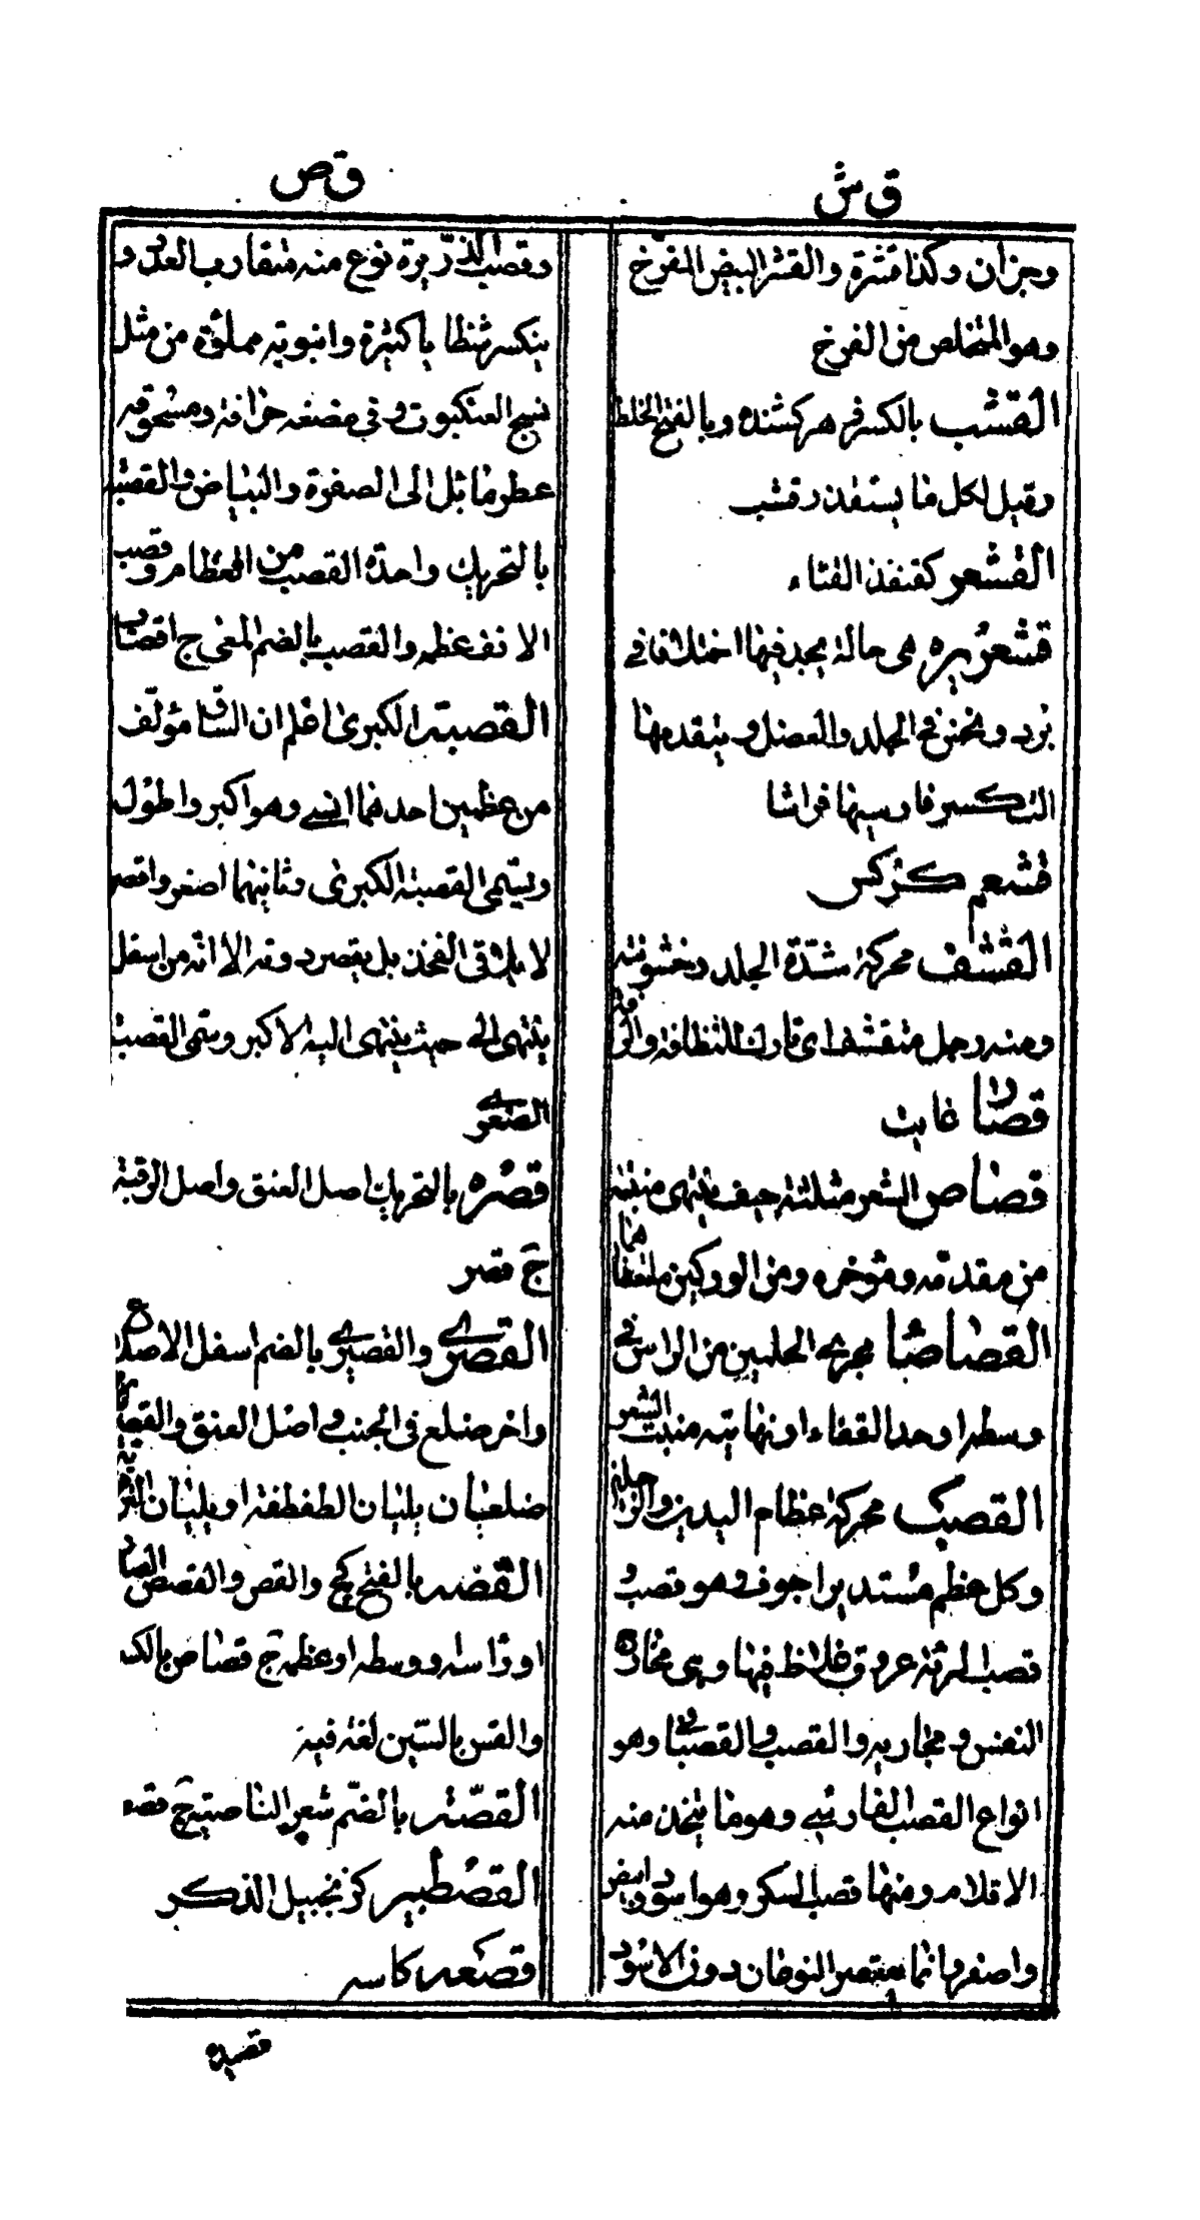 ق ش
وجزان وكذا قشرة والقشر البيض المفرخ
وهو المتخلص من الفرخ
القشب بالكسر زهر كشنده وبالفتح الخلط
وقيل لكل ما يستقذر قشب
القشعر كقنفذ القثاء
قشعريره هى حالة يجد فيها اختلافا فى
برد ونخس فى الجلد والعضل و يتقدمها
التكسر فارسيها فراشا
قشعم كركس
القشف محركة شدّة الجلد وخشونته
ومنه رجل متقشف اى تارك النظافة والترفه
قصارا غايت
قصاص الشعر مثلثة حيث ينتهى منبته
من مقدمه ومؤخره ومن الوركين ملتقاهما
القصاصا مجرى الجلمين من الراس فى
وسطه او حد القفاء او نهاية منبت الشعر
القصب محركة عظام اليدين والرجلين
وكل عظم مستدير اجوف وهو قصب و
قصب الرئة عروق غلاظ فيها وهى مخارج
النفس و مجاريه والقصب والقصبا وهو
انواع القصب الفارسى وهو ما يتخذ منه
الاقلام ومنها قصب السكر وهو اسود وابيض
واصفر وانما يعتصر النوعان دون الاسود
ق ص
وقصب الذريرة نوع منه متقارب العقد و
ينكسر شظايا كثيرة وانبوبته مملوءة من مثل
نسج العنكبوت و فى مضغه حرافة ومسحوقه
عطر مائل الى الصفرة والبياض والقصبة
بالتحريك واحدة القصب من العظام وقصب
الانف عظمه والقصب بالضم المعى ج اقصاب
القصبة الكبرى اعلم ان الساق مؤلف
من عظمين احدهما انسى وهو اكبر واطول
ويسمى القصبة الكبرى وثانيهما اصغر واقصر
لا يلاقى الفخذ بل يقصر دونه الا انه من اسفل
ينتهى الى حيث ينتهى اليه الاكبر وسمى القصبة
الصغرى
قصره بالتحريك اصل العنق واصل الرقبة
ج قصر
القصرى والقصيرى بالضم اسفل الاضلاع
واخر ضلع فى الجنب و اصل العنق والقصريان
ضلعان يليان الطفطفة او يليان الترقوتين
القصه بالفتح كج والقص والقصص الصدر
او راسه ووسطه او عظمه ج قصاص بالكسر
والقس بالسين لغة فيه
القصّة بالضّم شعر الناصية ج قصص
القصطبير كزنجبيل الذكر
قصعه كاسه
قصيده